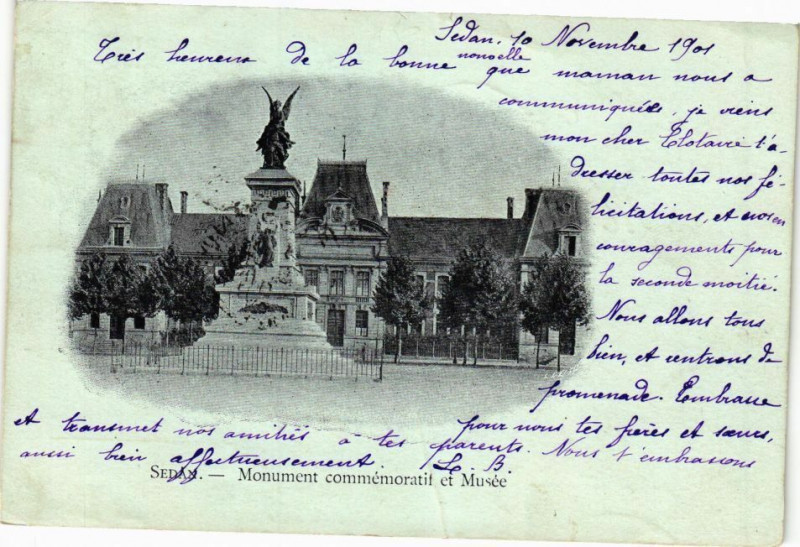 Sedan, 10 Novembre 1901
Très heureux de la bonne nouvelle que maman nous a
communiquée, je viens
mon cher Clotaire t'a-
dresser toutes nos fé-
licitations, et nos en
couragements pour
la seconde moitié.
Nous allons tous
bien, et rentrons de
promenade. Embrasse
pour nous tes frères et sœurs,
et transmet nos amitiés à tes parents. Nous t'embrassons
aussi bien affectueusement. L. B.
SEDAN. — Monument commémoratif et Musée